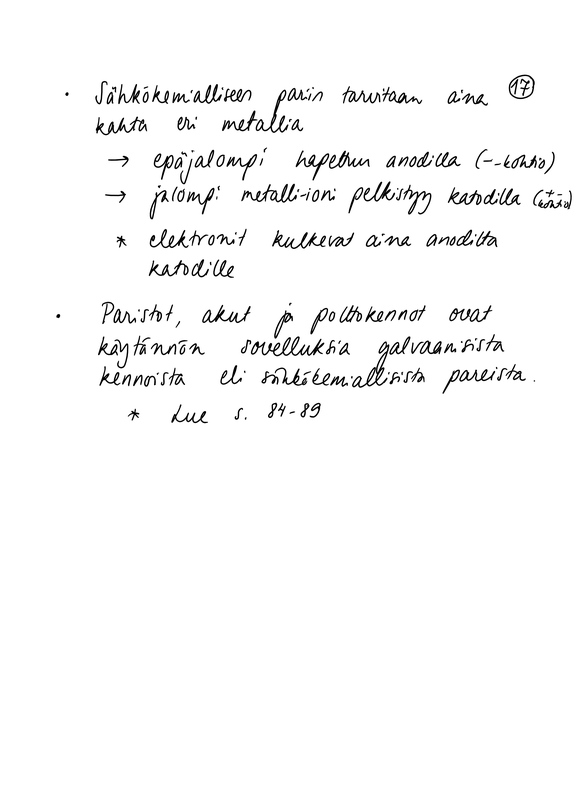 17
• Sähkökemialliseen pariin tarvitaan aina
kahta eri metallia
→ epäjalompi hapettuu anodilla (–-kohtio)
→ jalompi metalli-ioni pelkistyy katodilla (+-kohtio)
* elektronit kulkevat aina anodilta
katodille
• Paristot, akut ja polttokennot ovat
käytännön sovelluksia galvaanisista
kennoista eli sähkökemiallisista pareista.
* Lue s. 84-89